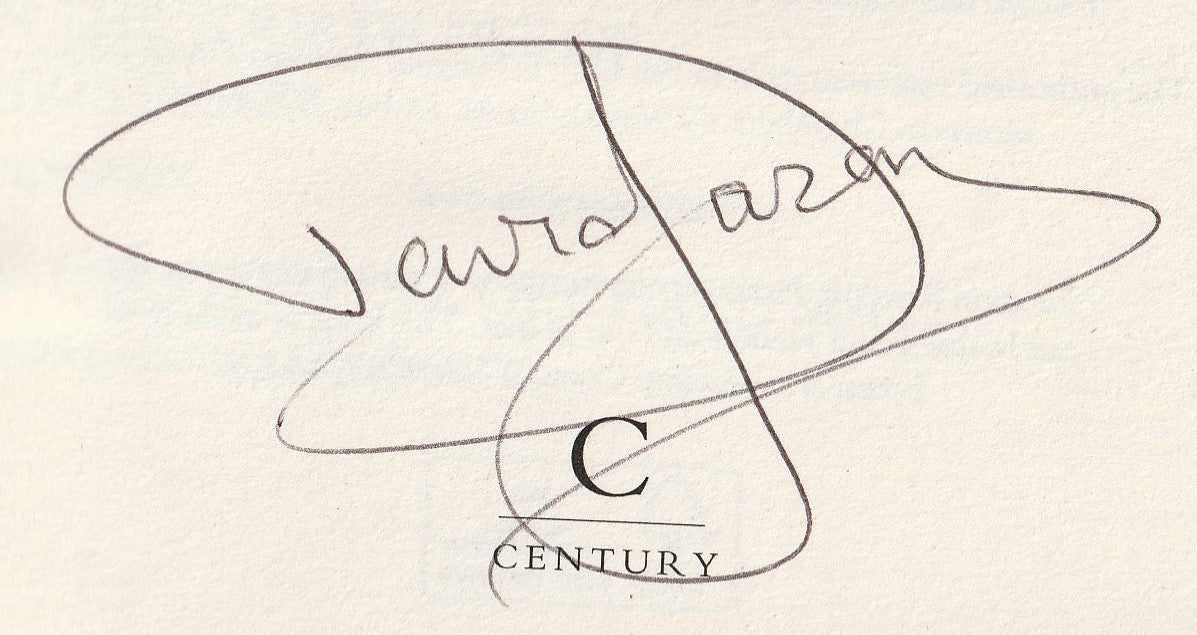 David Jason
C
CENTURY